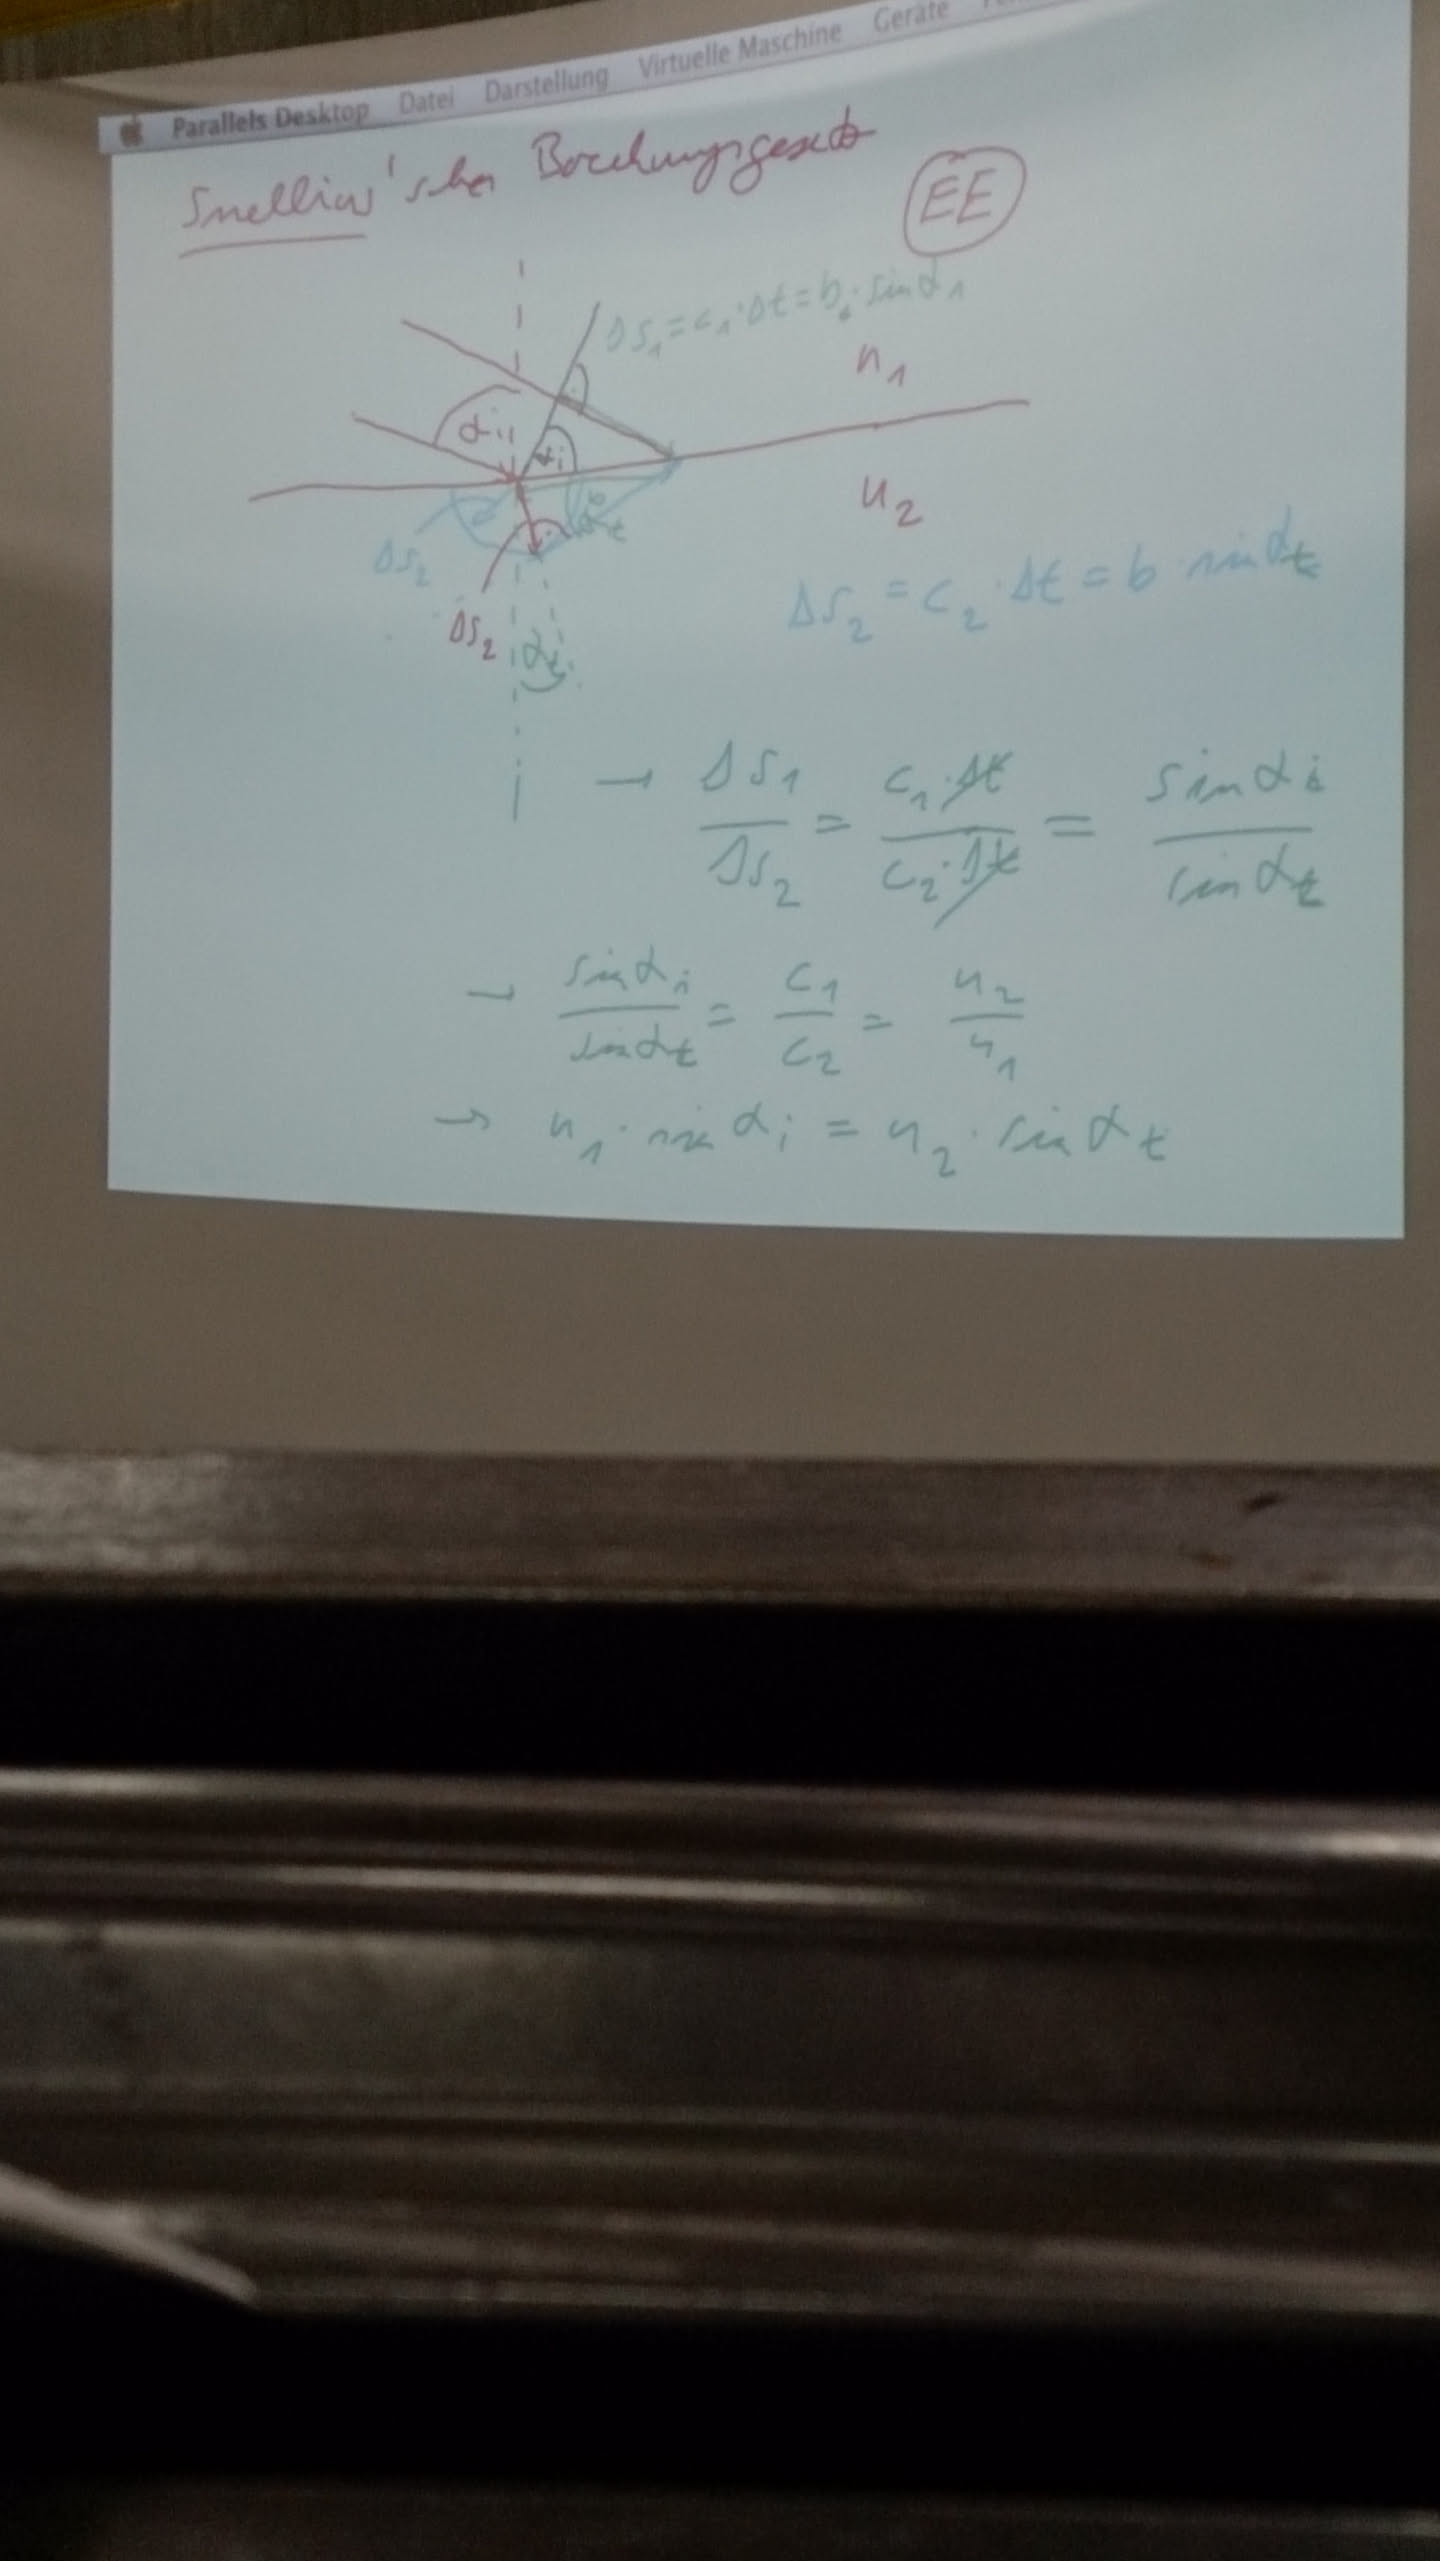 Parallels Desktop Datei Darstellung Virtuelle Maschine Geräte
Snellius'sches Brechungsgesetz
EE
Δs₁ = c₁·Δt = b·sin α₁
n₁
αi
αi
n₂
b
αt
Δs₂
Δs₂ = c₂·Δt = b·sin αt
Δs₂
αt
→ Δs₁/Δs₂ = c₁·Δt/c₂·Δt = sin αi/sin αt
→ sin αi/sin αt = c₁/c₂ = n₂/n₁
→ n₁·sin αi = n₂·sin αt